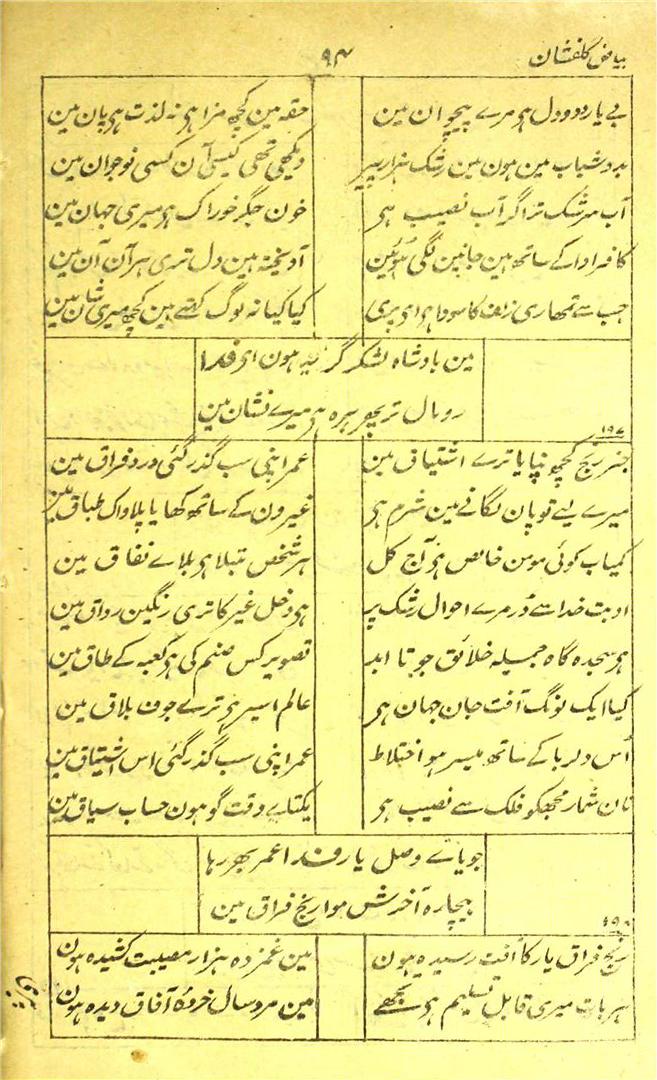 بیاض گلفشان
۹۴
بے یار دود دل ہو مرے پیچوان مین حقہ مین کچھ مزا ہو نہ لذت ہو پان مین
بدو شباب مین ہون مین رشک ہزار پیر دیکھی تھی کیسی آن کسی نوجوان مین
آب سرشک تر اگر آب نصیب ہو خون جگر خوراک ہو میری جہان مین
کافر ادا کے ساتھ ہین جانین لگی ہوئین آویختہ ہین دل تری ہر آن آن مین
جب سے تمھاری زلف کا سودا ہوا ای پری کیا کیا نہ لوگ کہتے ہین کچھ میری شان مین
مین بادشاہ لشکر گریہ ہون ای فدا
رومال تر پھریرہ ہو میرے نشان مین
۱۹۷
جز رنج کچھ نپایا ترے اشتیاق مین عمر اپنی سب گذر گئی درد فراق مین
میرے لیے تو پان لگانے مین شرم ہو غیرون کے ساتھ کھایا پلاو اک طباق مین
کمیاب کوئی مومن خالص ہو آج کل ہر شخص مبتلا ہو بلاے نفاق مین
او بت خدا سے ڈر مرے احوال رشک پر ہو دخل غیر کا تری رنگین رواق مین
ہو سجدہ گاہ جمیلہ خلائق جو تا ابد تصویر کس صنم کی ہو کعبہ کے طاق مین
کیا ایک لونگ آفت جان جہان ہو عالم اسیر ہو ترے جوف بلاق مین
اس دلربا کے ساتھ میسر ہو اختلاط عمر اپنی سب گذر گئی اس اشتیاق مین
نان شمار مجھکو فلک سے نصیب ہو یکتاے وقت گو ہون حساب سیاق مین
جویاے وصل یار فدا عمر بھر رہا
بیچارہ آخرش موا رنج فراق مین
۱۹۸
رنج فراق یار کا آفت رسیدہ ہون مین غمزدہ ہزار مصیبت کشیدہ ہون
ہر بات میری قابل تسلیم ہو تجھے مین مرد سال خردہ آفاق دیدہ ہون